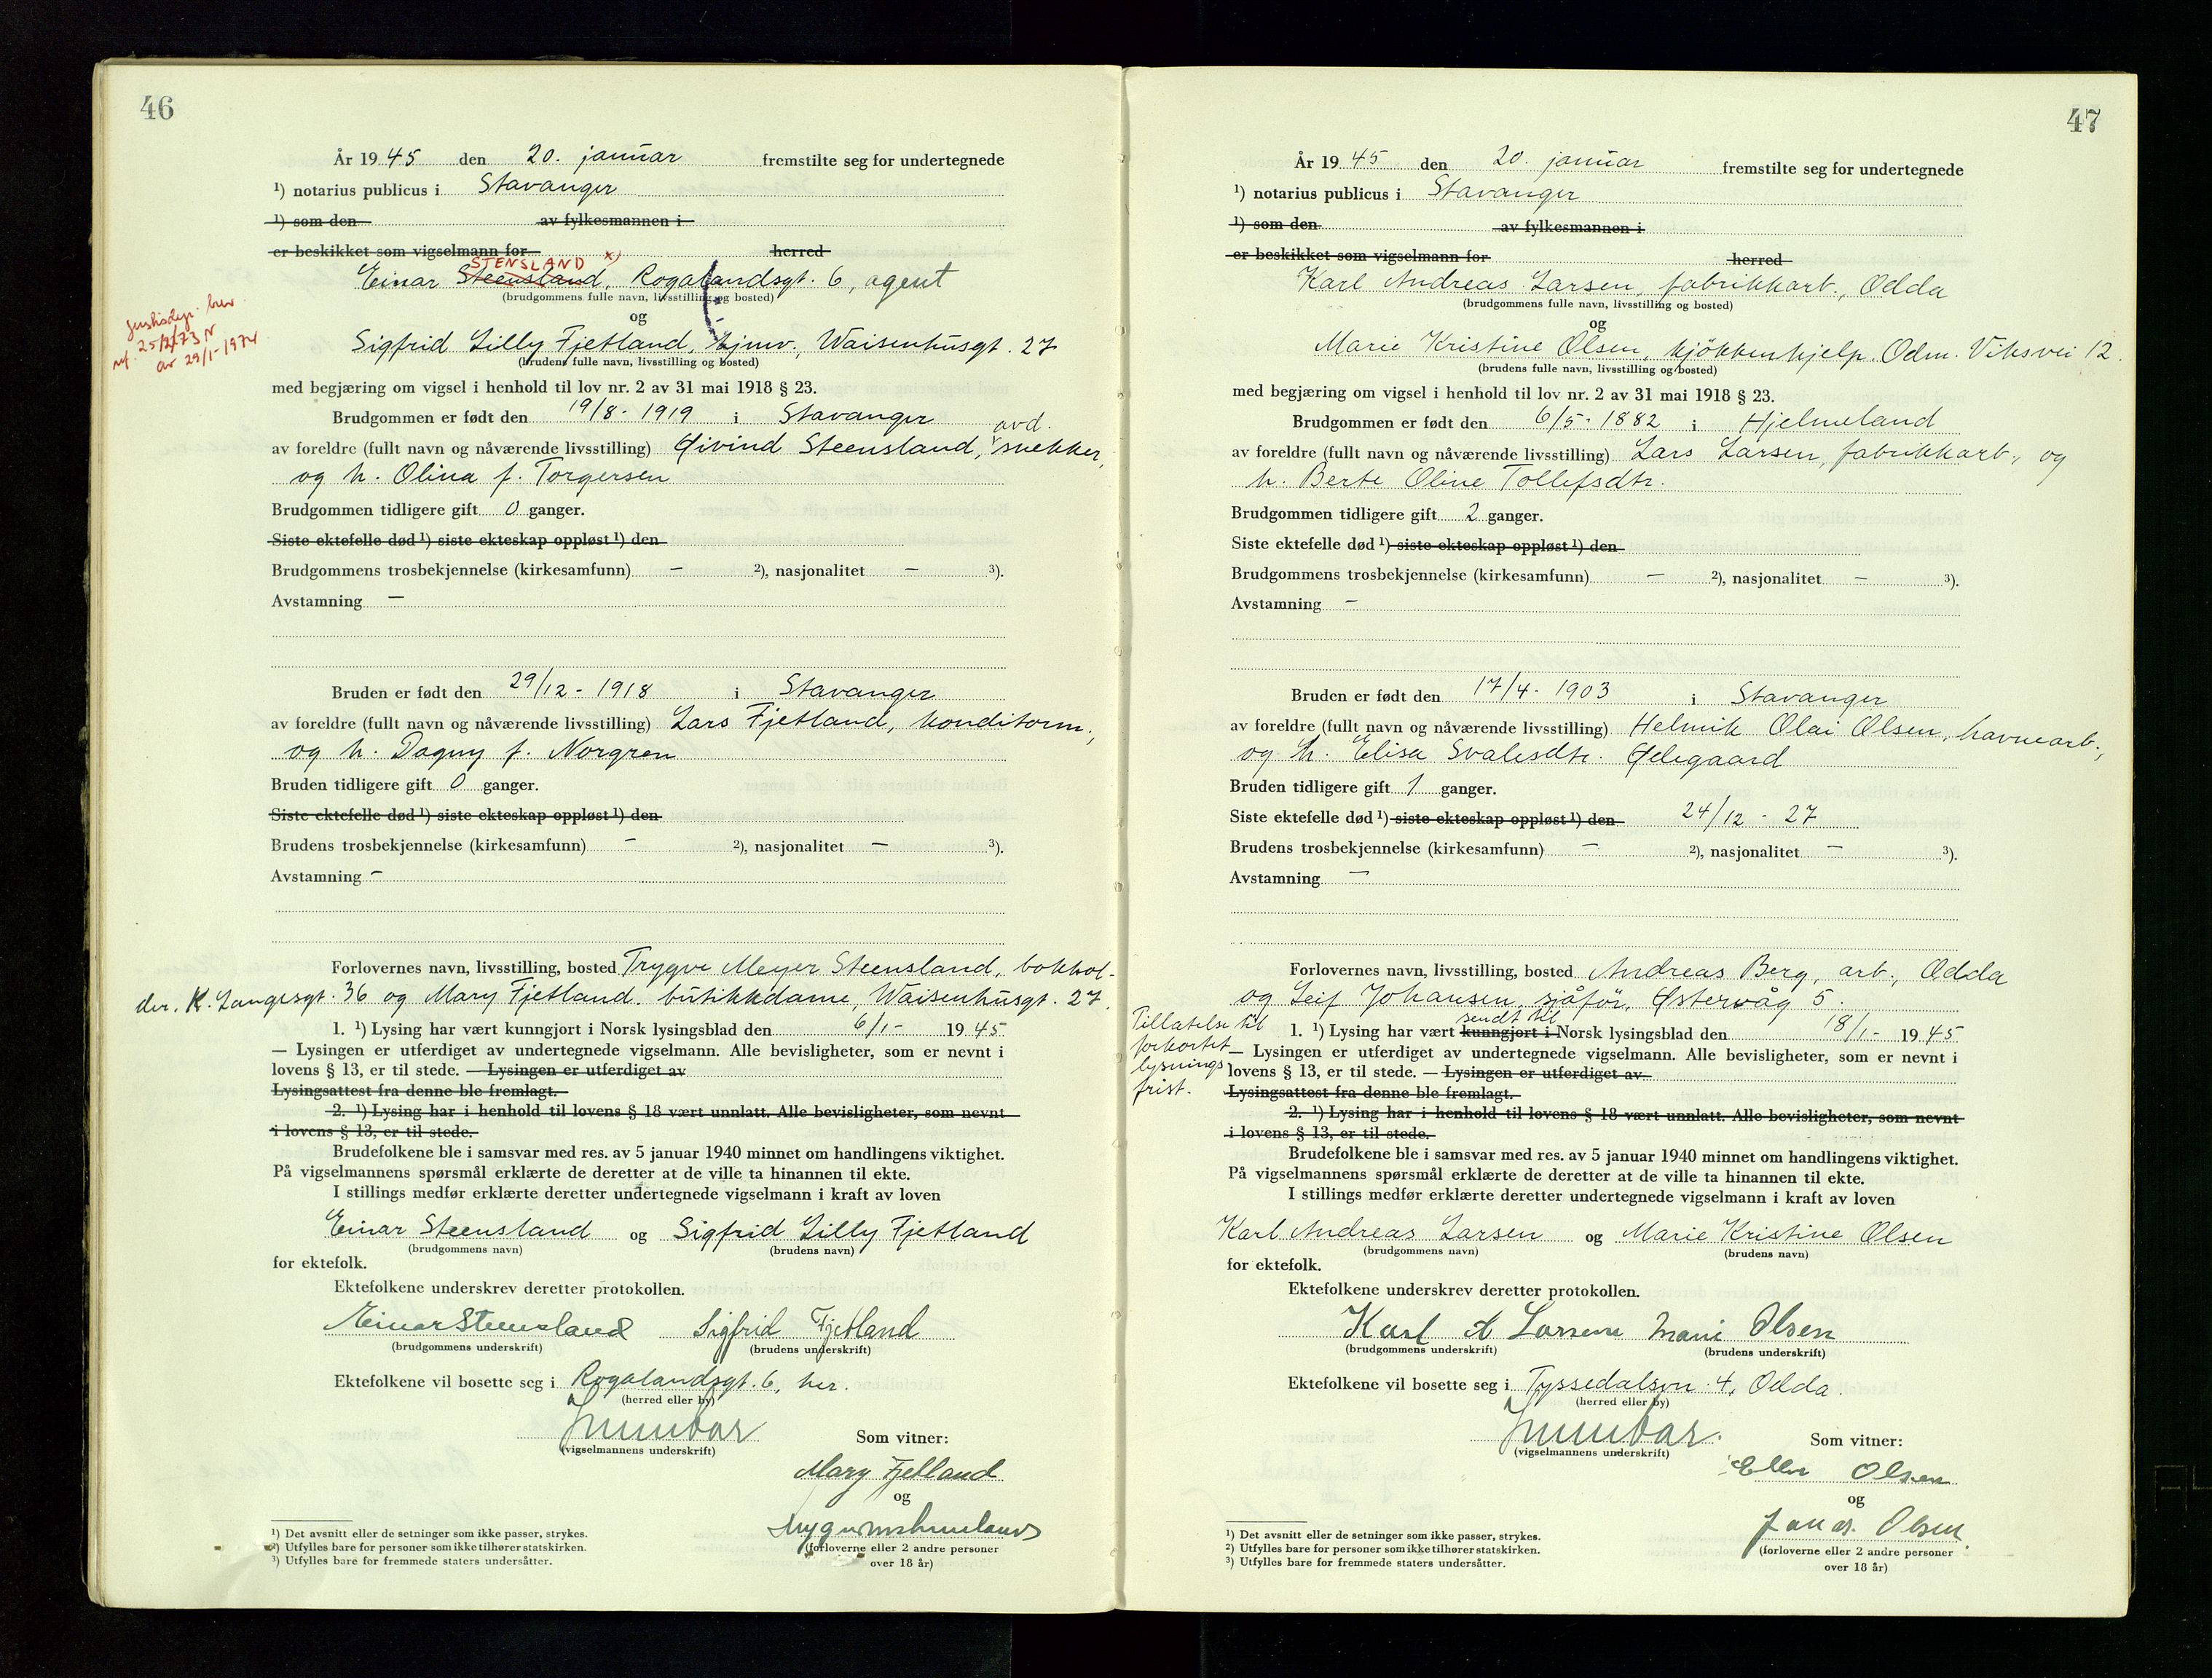 46
År 1945 den 20. januar fremstilte seg for undertegnede
¹) notarius publicus i Stavanger
¹) som den av fylkesmannen i
er beskikket som vigselmann for herred
STENSLAND x)
Einar Steensland, Rogalandsgt. 6, agent
(brudgommens fulle navn, livsstilling og bosted)
og
Sigfrid Lilly Fjetland, hjmv., Waisenhusgt. 27
(brudens fulle navn, livsstilling og bosted)
justisdep. brev
ref. 25/2/73 N
av 29/1-1974
med begjæring om vigsel i henhold til lov nr. 2 av 31 mai 1918 § 23.
Brudgommen er født den 19/8- 1919 i Stavanger
avd.
av foreldre (fullt navn og nåværende livsstilling) Øivind Steensland, snekker,
og h. Olina f. Torgersen
Brudgommen tidligere gift 0 ganger.
Siste ektefelle død ¹) siste ekteskap oppløst ¹) den
Brudgommens trosbekjennelse (kirkesamfunn) — ²), nasjonalitet — ³).
Avstamning —
Bruden er født den 29/12- 1918 i Stavanger
av foreldre (fullt navn og nåværende livsstilling) Lars Fjetland, konditorm.,
og h. Dagny f. Norgren
Bruden tidligere gift 0 ganger.
Siste ektefelle død ¹) siste ekteskap oppløst ¹) den
Brudens trosbekjennelse (kirkesamfunn) — ²), nasjonalitet — ³).
Avstamning —
Forlovernes navn, livsstilling, bosted Trygve Meyer Steensland, bokhol-
der. K. Langesgt. 36 og Mary Fjetland. butikkdame, Waisenhusgt. 27.
1. ¹) Lysing har vært kunngjort i Norsk lysingsblad den 6/1- 1945
— Lysingen er utferdiget av undertegnede vigselmann. Alle bevisligheter, som er nevnt i
lovens § 13, er til stede. — Lysingen er utferdiget av
Lysingsattest fra denne ble fremlagt.
2. ¹) Lysing har i henhold til lovens § 18 vært unnlatt. Alle bevisligheter, som nevnt
i lovens § 13, er til stede.
Brudefolkene ble i samsvar med res. av 5 januar 1940 minnet om handlingens viktighet.
På vigselmannens spørsmål erklærte de deretter at de ville ta hinannen til ekte.
I stillings medfør erklærte deretter undertegnede vigselmann i kraft av loven
Einar Steensland og Sigfrid Lilly Fjetland
(brudgommens navn) (brudens navn)
for ektefolk.
Ektefolkene underskrev deretter protokollen.
Einar Steensland Sigfrid Fjetland
(brudgommens underskrift) (brudens underskrift)
Ektefolkene vil bosette seg i Rogalandsgt. 6, her.
(herred eller by)
(vigselmannens underskrift)
Som vitner:
Mary Fjetland
og
(forloverne eller 2 andre personer
over 18 år)
¹) Det avsnitt eller de setninger som ikke passer, strykes.
²) Utfylles bare for personer som ikke tilhører statskirken.
³) Utfylles bare for fremmede staters undersåtter.
47
År 1945 den 20. januar fremstilte seg for undertegnede
¹) notarius publicus i Stavanger
¹) som den av fylkesmannen i
er beskikket som vigselmann for herred
Karl Andreas Larsen, fabrikkarb., Odda
(brudgommens fulle navn, livsstilling og bosted)
og
Marie Kristine Olsen, kjökkenhjelp. Odm. Viksvei 12.
(brudens fulle navn, livsstilling og bosted)
med begjæring om vigsel i henhold til lov nr. 2 av 31 mai 1918 § 23.
Brudgommen er født den 6/5- 1882 i Hjelmeland
av foreldre (fullt navn og nåværende livsstilling) Lars Larsen, fabrikkarb., og
h. Berte Oline Tollefsdtr.
Brudgommen tidligere gift 2 ganger.
Siste ektefelle død ¹) siste ekteskap oppløst ¹) den
Brudgommens trosbekjennelse (kirkesamfunn) — ²), nasjonalitet — ³).
Avstamning —
Bruden er født den 17/4- 1903 i Stavanger
av foreldre (fullt navn og nåværende livsstilling) Helmik Olai Olsen, havnearb.,
og h. Elisa Svalesdtr. Ødegaard
Bruden tidligere gift 1 ganger.
Siste ektefelle død ¹) siste ekteskap oppløst ¹) den 24/12 - 27
Brudens trosbekjennelse (kirkesamfunn) — ²), nasjonalitet — ³).
Avstamning —
Forlovernes navn, livsstilling, bosted Andreas Berg, arb., Odda
og Leif Johansen, sjåför, Østervåg 5.
Tillatelse til
forkortet
lysnings
frist.
sendt til
1. ¹) Lysing har vært kunngjort i Norsk lysingsblad den 18/1- 1945
— Lysingen er utferdiget av undertegnede vigselmann. Alle bevisligheter, som er nevnt i
lovens § 13, er til stede. — Lysingen er utferdiget av
Lysingsattest fra denne ble fremlagt.
2. ¹) Lysing har i henhold til lovens § 18 vært unnlatt. Alle bevisligheter, som nevnt
i lovens § 13, er til stede.
Brudefolkene ble i samsvar med res. av 5 januar 1940 minnet om handlingens viktighet.
På vigselmannens spørsmål erklærte de deretter at de ville ta hinannen til ekte.
I stillings medfør erklærte deretter undertegnede vigselmann i kraft av loven
Karl Andreas Larsen og Marie Kristine Olsen
(brudgommens navn) (brudens navn)
for ektefolk.
Ektefolkene underskrev deretter protokollen.
Karl A Larsen Marie Olsen
(brudgommens underskrift) (brudens underskrift)
Ektefolkene vil bosette seg i Tyssedalsvn. 4, Odda.
(herred eller by)
(vigselmannens underskrift)
Som vitner:
Ellen Olsen
og
Olsen
(forloverne eller 2 andre personer
over 18 år)
¹) Det avsnitt eller de setninger som ikke passer, strykes.
²) Utfylles bare for personer som ikke tilhører statskirken.
³) Utfylles bare for fremmede staters undersåtter.